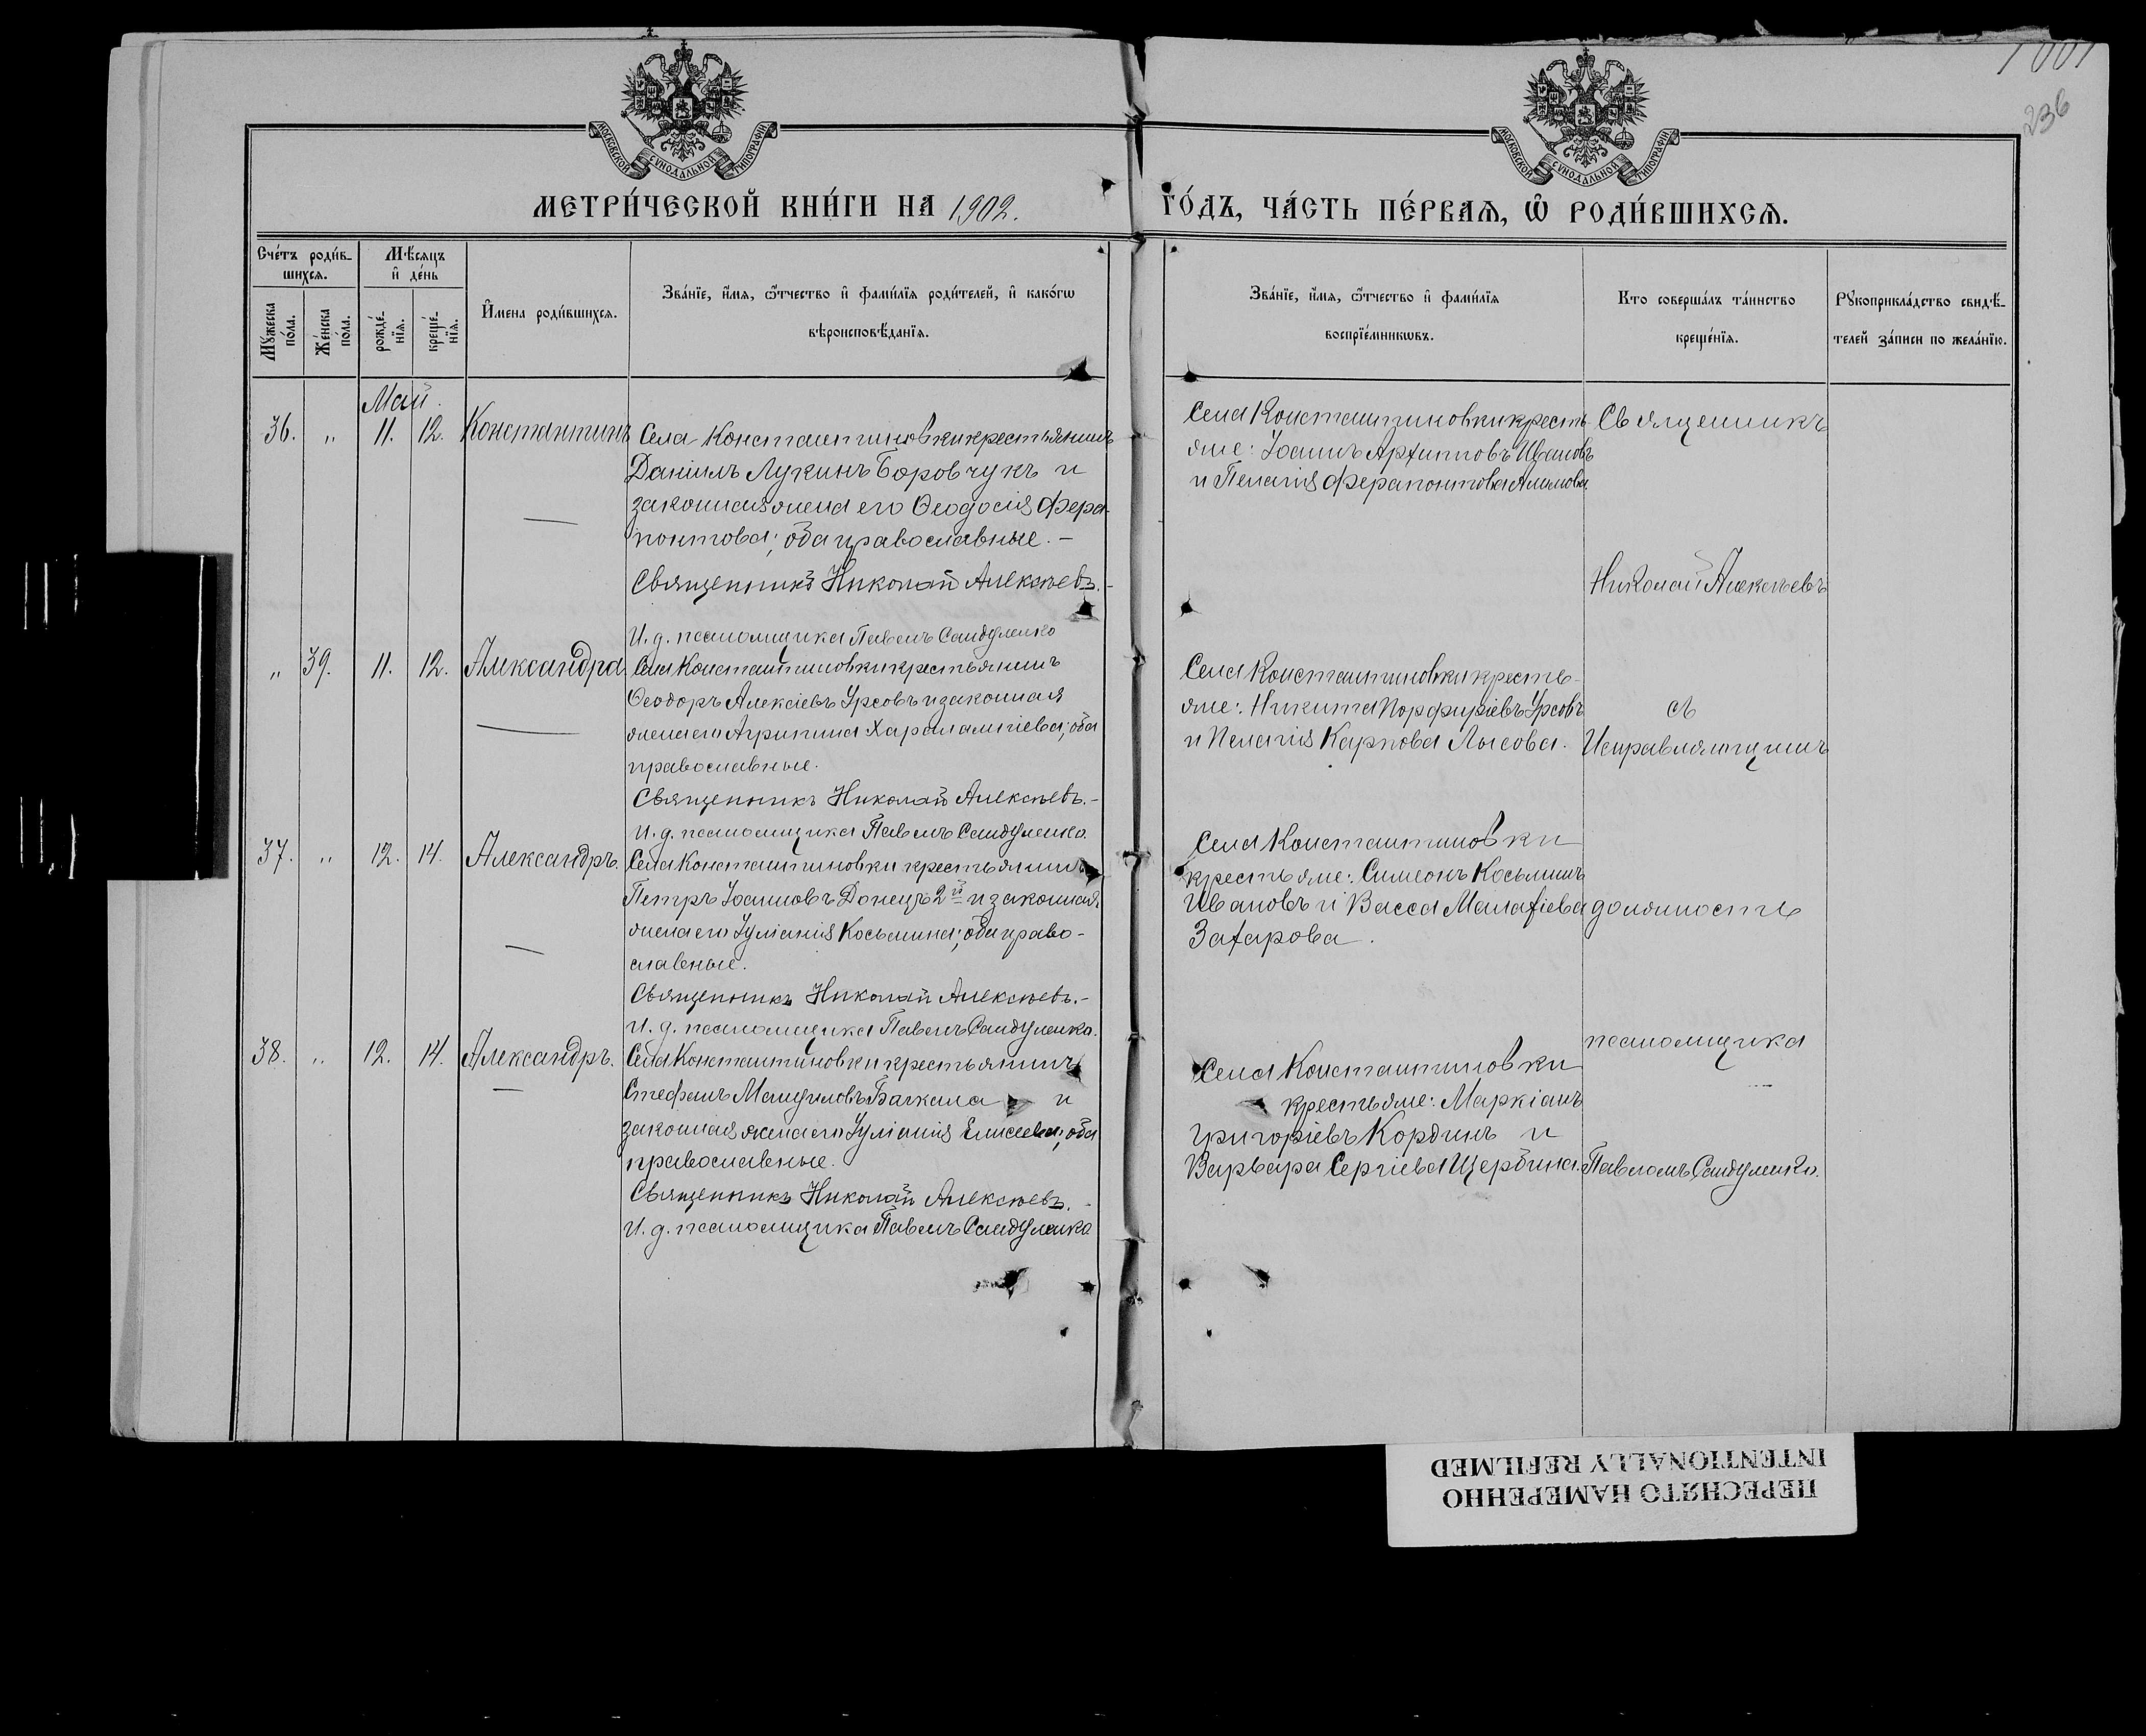 1001
236
МОСКОВСКОЙ СѴНОДАЛЬНОЙ ТИПОГРАФІИ
МОСКОВСКОЙ СѴНОДАЛЬНОЙ ТИПОГРАФІИ
МЕТРИ́ЧЕСКОЙ КНИ́ГИ НА 1902.
ГО́ДЪ, ЧА́СТЬ ПЕ́РВАЯ, Ѽ РОДИ́ВШИХСЯ.
Сче́тъ роди́в-
шихся.
Мꙋжеска по́ла.
Же́нска по́ла.
Мѣ́сяцъ
и҆ де́нь
рожде́-
нїя.
креще́-
нїя.
И҆мена роди́вшихся.
Зва́нїе, и҆́мя, ѻ҆́тчество и҆ фами́лїя роди́телей, и҆ како́гѡ
вѣроисповѣ́данїя.
Зва́нїе, и҆́мя, ѻ҆́тчество и҆ фами́лїя
воспрїе́мникѡвъ.
Кто соверша́лъ та́инство
креще́нїя.
Рꙋкоприкла́дство свидѣ́-
телей за́писи по жела́нїю.
Май.
36. " 11. 12. Константинъ
Села Константиновки крестьянинъ
Даніилъ Лукинъ Боровчукъ и
законная жена его Ѳеодосія Фера-
понтова; оба православные. -
Священникъ Николай Алексѣевъ. -
И. д. псаломщика Павелъ Сандуленко
Села Константиновки кресть
яне: Іоаннъ Архипповъ Ивановъ
и Пелагія Ферапонтова Алимова.
Священникъ
Николай Алексѣевъ
" 39. 11. 12. Александра.
Села Константиновки крестьянинъ
Ѳеодоръ Алексіевъ Урсовъ и законная
жена его Агрипина Харалампіева; оба
православные.
Священникъ Николай Алексѣевъ. -
И. д. псаломщика Павелъ Сандуленко.
Села Константиновки кресть-
яне: Никита Порфиріевъ Урсовъ
и Пелагія Карпова Лысова.
съ
Исправляющимъ
37. " 12. 14. Александръ.
Села Константиновки крестьянинъ
Петръ Іоанновъ Донецъ 2й и законная
жена его Іуліанія Косьмина; оба право-
славные.
Священникъ Николай Алексѣевъ. -
И. д. псаломщика Павелъ Сандуленко.
Села Константиновки
крестьяне: Симеонъ Косьминъ
Ивановъ и Васса Малахіева
Захарова.
должность
38. " 12. 14. Александръ.
Села Константиновки крестьянинъ
Стефанъ Мануиловъ Баткала и
законная жена его Іуліанія Елисеева; оба
православные.
Священникъ Николай Алексѣевъ. -
И. д. псаломщика Павелъ Сандуленко
Села Константиновки
крестьяне: Маркіанъ
Григоріевъ Кординъ и
Варвара Сергіева Щербина.
псаломщика
Павломъ Сандуленко.
ПЕРЕСНЯТО НАМЕРЕННО
INTENTIONALLY REFILMED